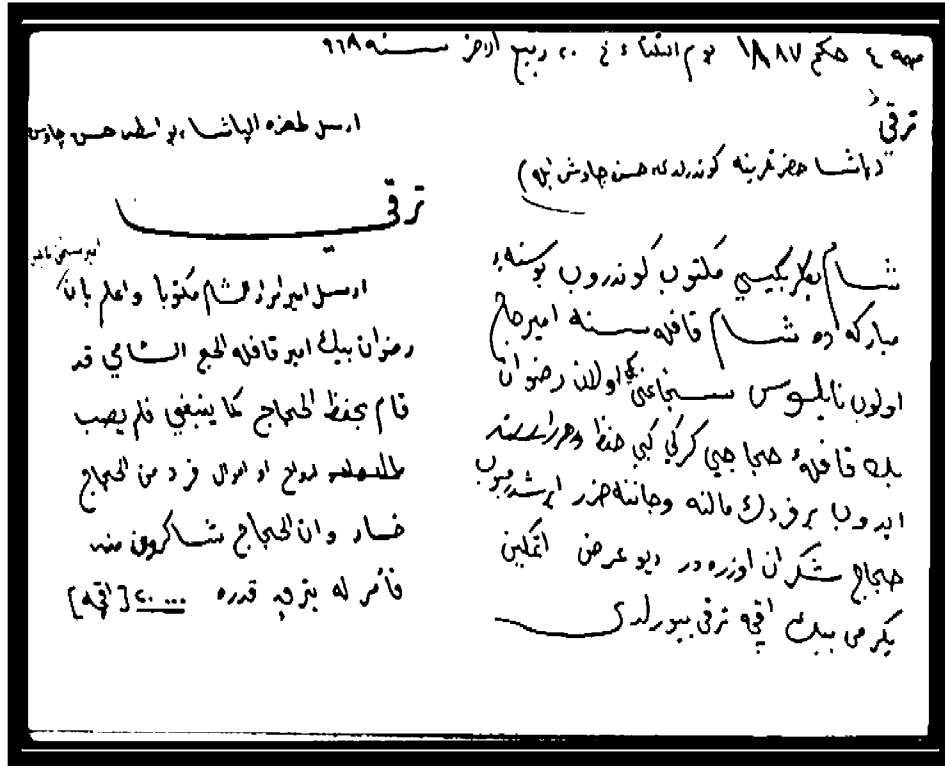 حكم ١٨٨٧ يوم الثلثاء في ٢٠ ربيع الاخر سنة ٩٦٨
ترقي
(پاشا حضرتلرينه كوندرلدى حسن چاوش ايله)
شام بكلربكيسي مكتوب كوندروب بو سنهء
مباركه ده شام قافله سنه امير حاج
اولوب نابلوس سنجاغى بكى اولان رضوان
بك قافلهء حجاجي كركي كبي حفظ وحراست
ايدوب بر فردك مالنه وجاننه ضرر ايرشدرميوب
حجاج شكران اوزره در ديو عرض اتمكين
يكرمى بيك اقچه ترقى بيورلدى
ارسل لحضرة الپاشا بواسطة حسن چاوش
ترقي
ارسل امير امراء الشام مكتوبا واعلم بان
رضوان بيك امير قافلة الحج الشامي قد
قام بحفظ الحجاج كما ينبغي فلم يصب
ارواح او اموال فرد من الحجاج
خسار وان الحجاج شاكرون منه
فأمر له بترقي قدره ٢٠٠٠٠ [اقچه]